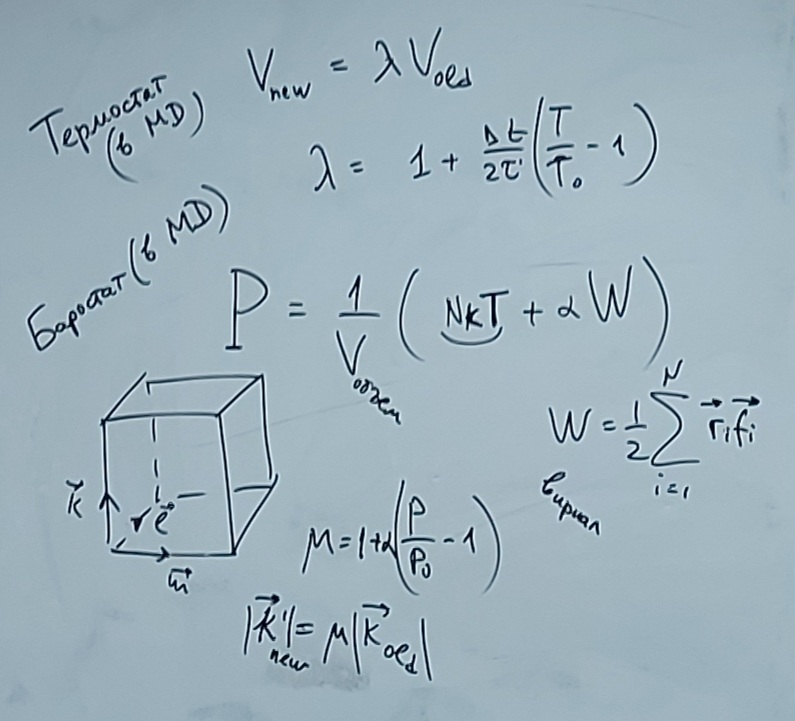 Термостат
(в MD)
V_new = λ V_old
λ = 1 + Δt/2τ (T/T₀ - 1)
Баростат (в MD)
P = 1/V_объем (NkT + αW)
W = 1/2 Σ_{i=1}^{N} r⃗ᵢf⃗ᵢ
вириал
k⃗
e⃗
m⃗
μ = 1 + α(P/P₀ - 1)
|k⃗'_new| = μ|k⃗_old|